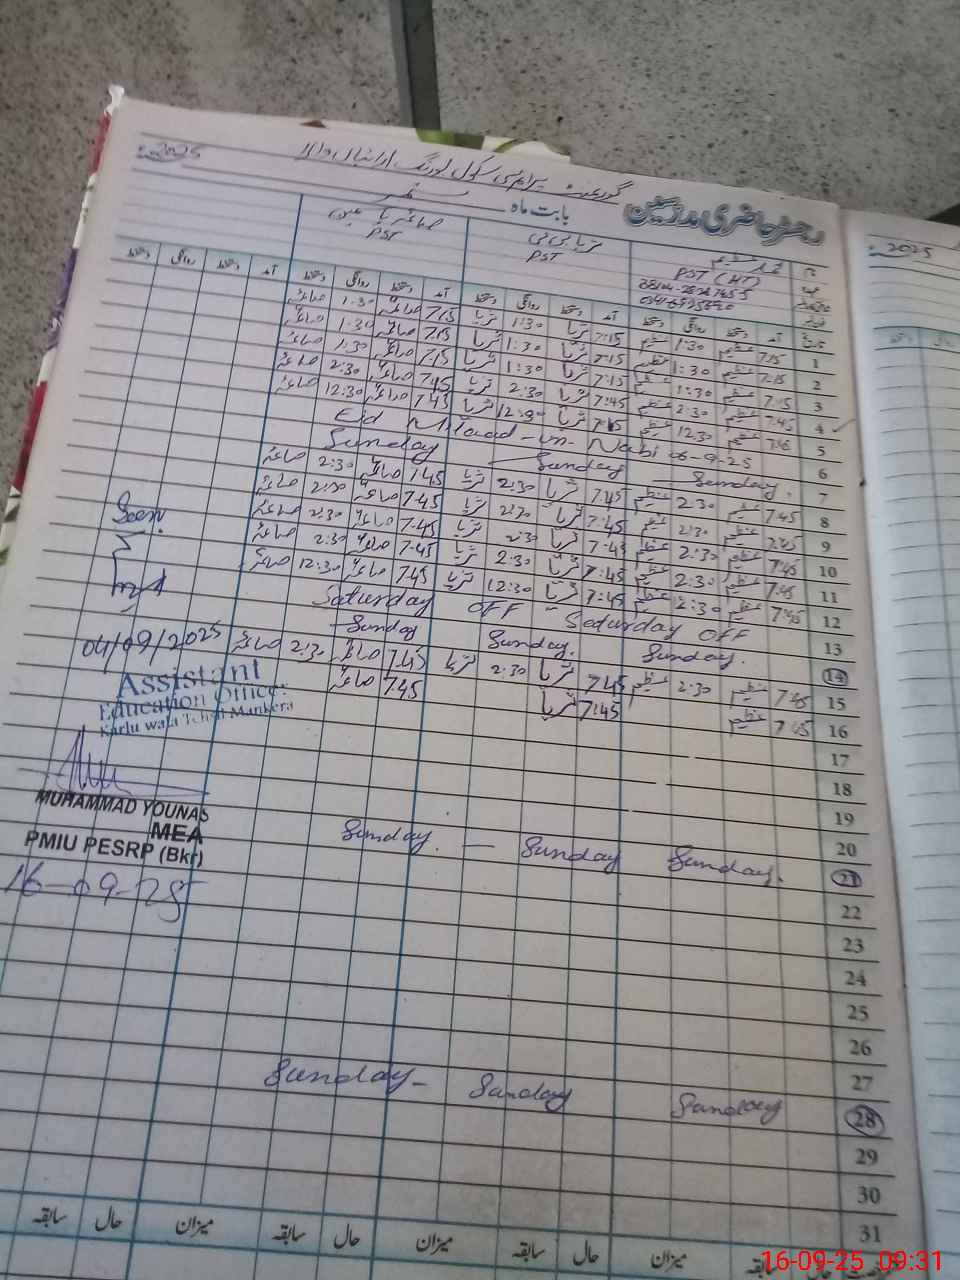 2025
گورنمنٹ پرائمری سکول
رجسٹر حاضری مدرسین
بابت ماہ ستمبر
2025
PST (HT)
PST
PST
آمد دستخط روانگی دستخط آمد دستخط روانگی دستخط آمد دستخط روانگی دستخط آمد دستخط روانگی دستخط
1 7:15 عظیم 1:30 عظیم 7:15 ثریا 1:30 ثریا 7:15 1:30
2 7:15 عظیم 1:30 عظیم 7:15 ثریا 1:30 ثریا 7:15 1:30
3 7:15 عظیم 1:30 عظیم 7:15 ثریا 1:30 ثریا 7:15 1:30
4 7:45 عظیم 2:30 عظیم 7:45 ثریا 2:30 ثریا 7:45 2:30
5 عظیم 12:30 عظیم ثریا 12:30 ثریا 7:45 12:30
6 Eid Milaad-un-Nabi 06-9-25
7 Sunday Sunday Sunday.
8 7:45 عظیم 2:30 عظیم 7:45 ثریا 2:30 ثریا 7:45 2:30
9 7:45 عظیم 2:30 عظیم 7:45 ثریا 2:30 ثریا 7:45 2:30
10 7:45 عظیم 2:30 عظیم 7:45 ثریا 2:30 ثریا 7:45 2:30
11 7:45 عظیم 2:30 عظیم 7:45 ثریا 2:30 ثریا 7:45 2:30
12 7:45 عظیم 2:30 عظیم 7:45 ثریا 12:30 ثریا 7:45 12:30
13 Saturday OFF - Saturday OFF
14 Sunday Sunday. Sunday.
15 7:45 عظیم 2:30 عظیم 7:45 ثریا 2:30 ثریا 7:45 2:30
16 7:45 عظیم 7:45 ثریا 7:45
17
18
19
20
21 Sunday. - Sunday Sunday.
22
23
24
25
26
27
28 Sunday - Sunday Sunday
29
30
31
Seen
04/09/2025
Assistant
Education Officer
Karlu wala Tehsil Mankera
MUHAMMAD YOUNAS
MEA
PMIU PESRP (Bkr)
16-09-25
میزان حال سابقہ میزان حال سابقہ میزان حال سابقہ
16-09-25 09:31